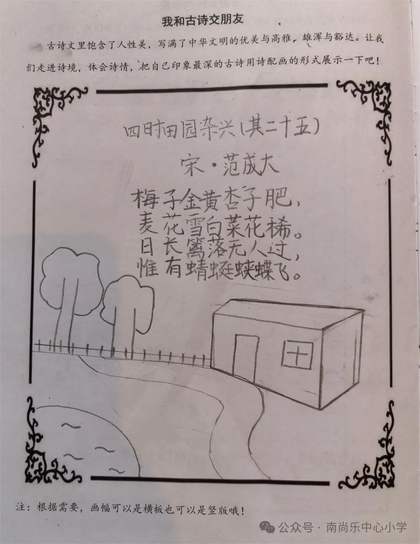 我和古诗交朋友
古诗文里饱含了人性美，写满了中华文明的优美与高雅，雄浑与豁达。让我
们走进诗境，体会诗情，把自己印象最深的古诗用诗配画的形式展示一下吧！
四时田园杂兴(其二十五)
宋·范成大
梅子金黄杏子肥，
麦花雪白菜花稀。
日长篱落无人过，
惟有蜻蜓蛱蝶飞。
注：根据需要，画幅可以是横板也可以是竖版哦！
公众号·南尚乐中心小学